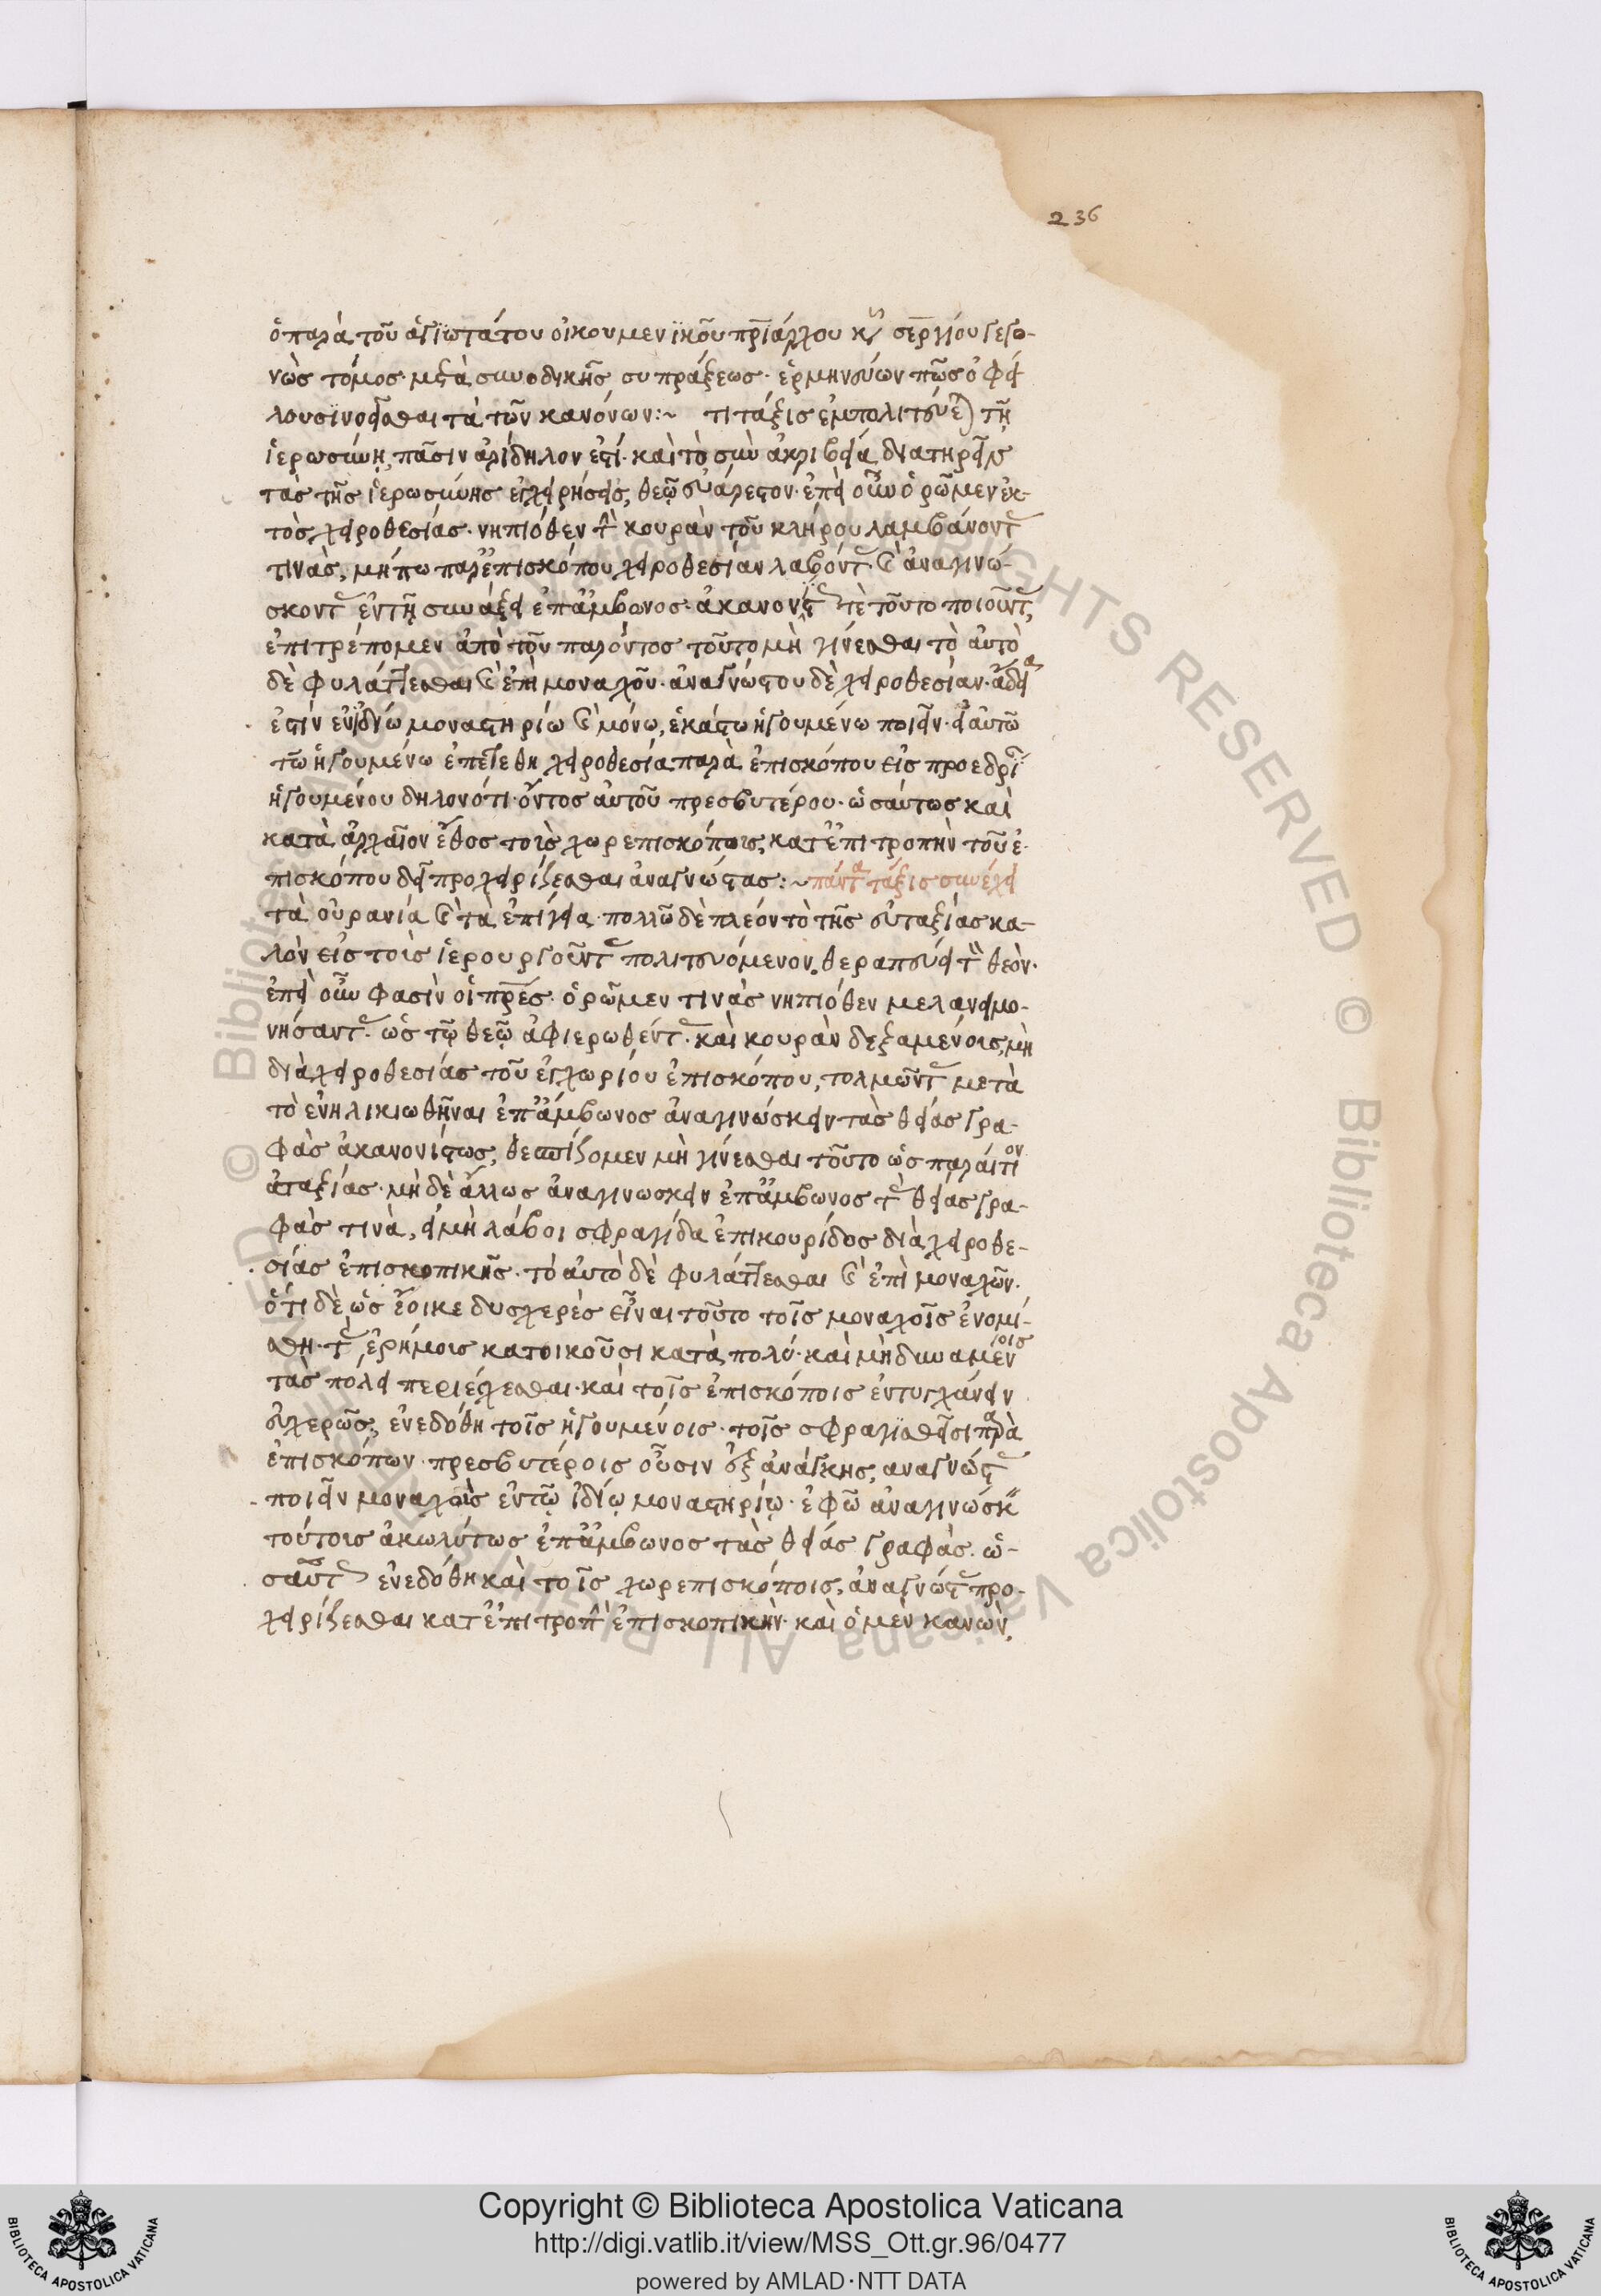 236
ὁ παρὰ τοῦ ἁγϊωτάτου οἰκουμενϊκοῦ πρϊάρχου κυ σεργίου γεγο-
νὼς τόμος· μετὰ συνοδικῆς συπράξεως· ἑρμηνεύων πῶς ὀφεί
λουσϊ νοεῖσθαι τὰ τῶν κανόνων:~ τι τάξις ἐμπολιτεύε) τῇ
ἱερωσύνῃ, πᾶσιν ἀρίδηλον ἐστί· καὶ τὸ σὺν ἀκριβεία διατηρεῖν
τὰς τῆς ἱερωσύνης ἐγχειρήσεις, θεῷ εὐάρεστον· ἐπεὶ οὖν ὁρῶμεν ἐκ-
τὸς χειροθεσίας· νηπιόθεν τὴν κουρὰν τοῦ κλήρου λαμβάνοντας
τινὰς, μήπω παρ' ἐπισκόπου χειροθεσίαν λαβόντας καὶ ἀναγινώ-
σκοντας ἐν τῇ συνάξει ἐπ' ἄμβωνος· ἀκανονίστως τὲ τοῦτο ποιοῦντας,
ἐπιτρέπομεν ἀπὸ τοῦ παρόντος τοῦτο μὴ γίνεσθαι τὸ αὐτὸ
δὲ φυλάττεσθαι καὶ ἐπὶ μοναχῶν· ἀναγνώστου δὲ χειροθεσίαν· ἄδεια
ἐστὶν ἐν ἰδίω μοναστηρίω καὶ μόνω, ἑκάστω ἡγουμένω ποιεῖν· εἰ αὐτῶ
τῶ ἡγουμένω ἐπετέθη χειροθεσία παρὰ ἐπισκόπου εἰς προεδρί
ἡγουμένου δηλονότι· ὄντος αὐτοῦ πρεσβυτέρου· ὡσαύτως καὶ
κατὰ ἀρχαῖον ἔθος τοὺς χωρεπισκόπους, κατ' ἐπιτροπὴν τοῦ ἐ-
πισκόπου δεῖ προχειρίζεσθαι ἀναγνώστας:~ πάντα τάξις συνέχει
τὰ οὐρανία καὶ τὰ ἐπίγεια· πολλῶ δὲ πλέον τὸ τῆς εὐταξίας κα-
λὸν εἰς τοὺς ἱερουργοῦντας πολιτευόμενον, θεραπεύει τὸν θεὸν·
ἐπεὶ οὖν φασὶν οἱ πρες· ὁρῶμεν τινὰς νηπιόθεν μελανειμο-
νήσαντας· ὡς τῷ θεῷ ἀφιερωθέντας· καὶ κουρὰν δεξαμένους, μὴ
διὰ χειροθεσίας τοῦ ἐγχωρίου ἐπισκόπου, τολμῶντας μετὰ
τὸ ἐνηλικιωθῆναι ἐπ' ἄμβωνος ἀναγινώσκειν τὰς θείας γρα-
φὰς ἀκανονίστως, θεσπίζομεν μὴ γίνεσθαι τοῦτο ὡς παραίτιον
ἀταξίας· μὴ δὲ ἄλλως ἀναγινωσκειν ἐπ' ἄμβωνος τὰς θείας γρα-
φὰς τινὰ, εἰ μὴ λάβοι σφραγίδα ἐπικουρίδος διὰ χειροθε-
σίας ἐπισκοπικῆς· τὸ αὐτὸ δὲ φυλάττεσθαι καὶ ἐπὶ μοναχῶν·
ὅτι δὲ ὡς ἔοικε δυσχερὲς εἶναι τοῦτο τοῖς μοναχοῖς ἐνομί-
σθη· τὰς ἐρήμους κατοικοῦσι κατὰ πολύ· καὶ μὴ δυναμένοις
τὰς πόλεις περιέρχεσθαι· καὶ τοῖς ἐπισκόποις ἐντυγχάνειν
εὐχερῶς, ἐνεδόθη τοῖς ἡγουμένοις· τοῖς σφραγϊσθεῖσι παρὰ
ἐπισκόπων· πρεσβυτέροις οὖσιν ἐξ ἀνάγκης, αναγνώστας
ποιεῖν μοναχοὺς ἐν τῷ ἰδίῳ μοναστηρίῳ· ἐφ ῶ ἀναγινώσκειν
τούτοις ἀκωλύτως ἐπ' ἄμβωνος τὰς θείας γραφὰς· ὡ-
σαύτως ἐνεδόθη καὶ τοῖς χωρεπισκόποις, ἀναγνώστας προ-
χειρίζεσθαι κατ' ἐπιτροπὴν ἐπισκοπικὴν· καὶ ὁ μὲν κανὼν,
Copyright © Biblioteca Apostolica Vaticana
http://digi.vatlib.it/view/MSS_Ott.gr.96/0477
powered by AMLAD·NTT DATA